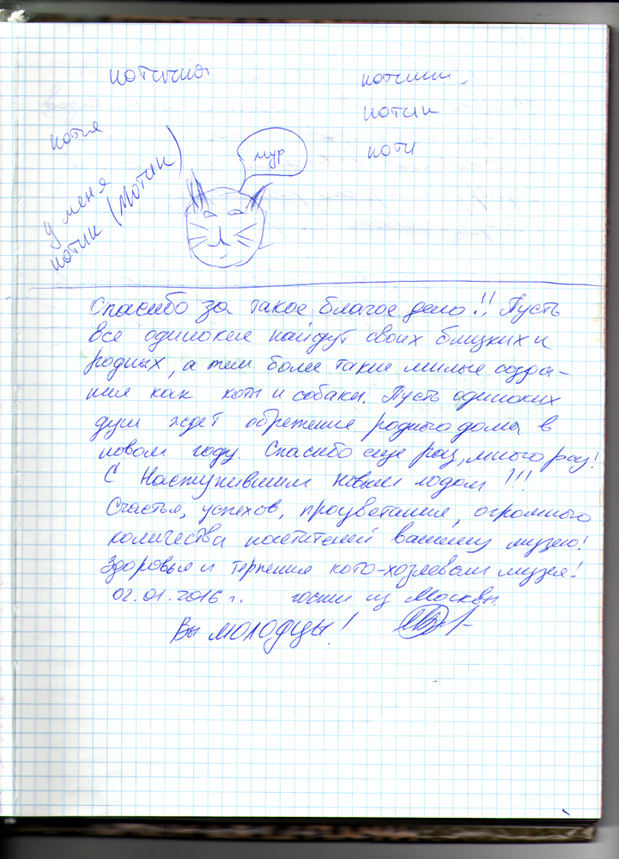 котичка
котики.
котик
коти
котя
мур
у меня
котик (мотик)
Спасибо за такое благое дело!! Пусть
все одинокие найдут своих близких и
родных, а тем более такие милые созда-
ния как коты и собаки. Пусть одиноких
душ ждет обретение родного дома в
новом году. Спасибо еще раз, много раз!
С Наступившим Новым годом!!!
Счастья, успехов, процветания, огромного
количества посетителей вашему музею!
Здоровья и терпения кото-хозяевам музея!
02.01.2016 г. гости из Москвы.
Вы молодцы!